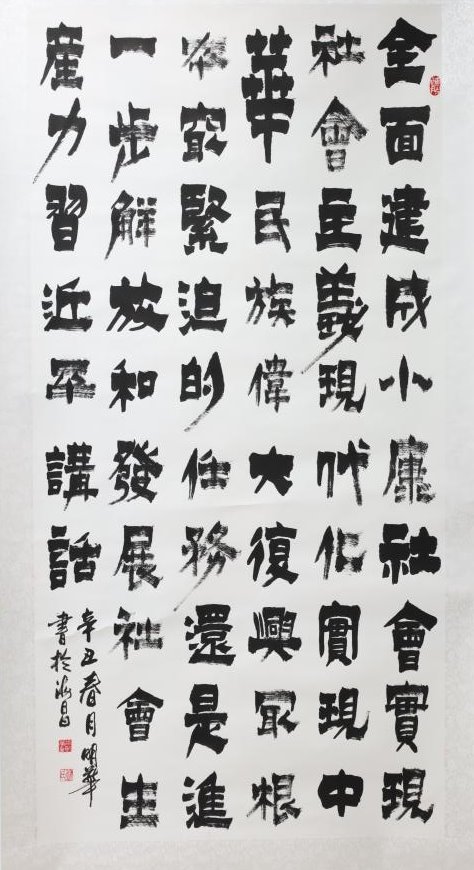 全面建成小康社會實現
社會主義現代化實現中
華民族偉大復興最根
本最緊迫的任務還是進
一步解放和發展社會生
産力習近平講話
辛丑春月明華
書於昌